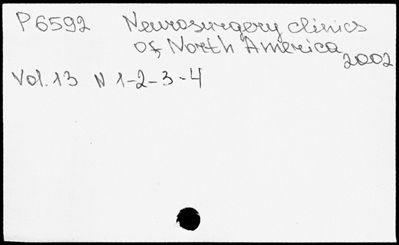 P6592 Neurosurgery clinics
of North America
2002
Vol.13 N 1-2-3-4